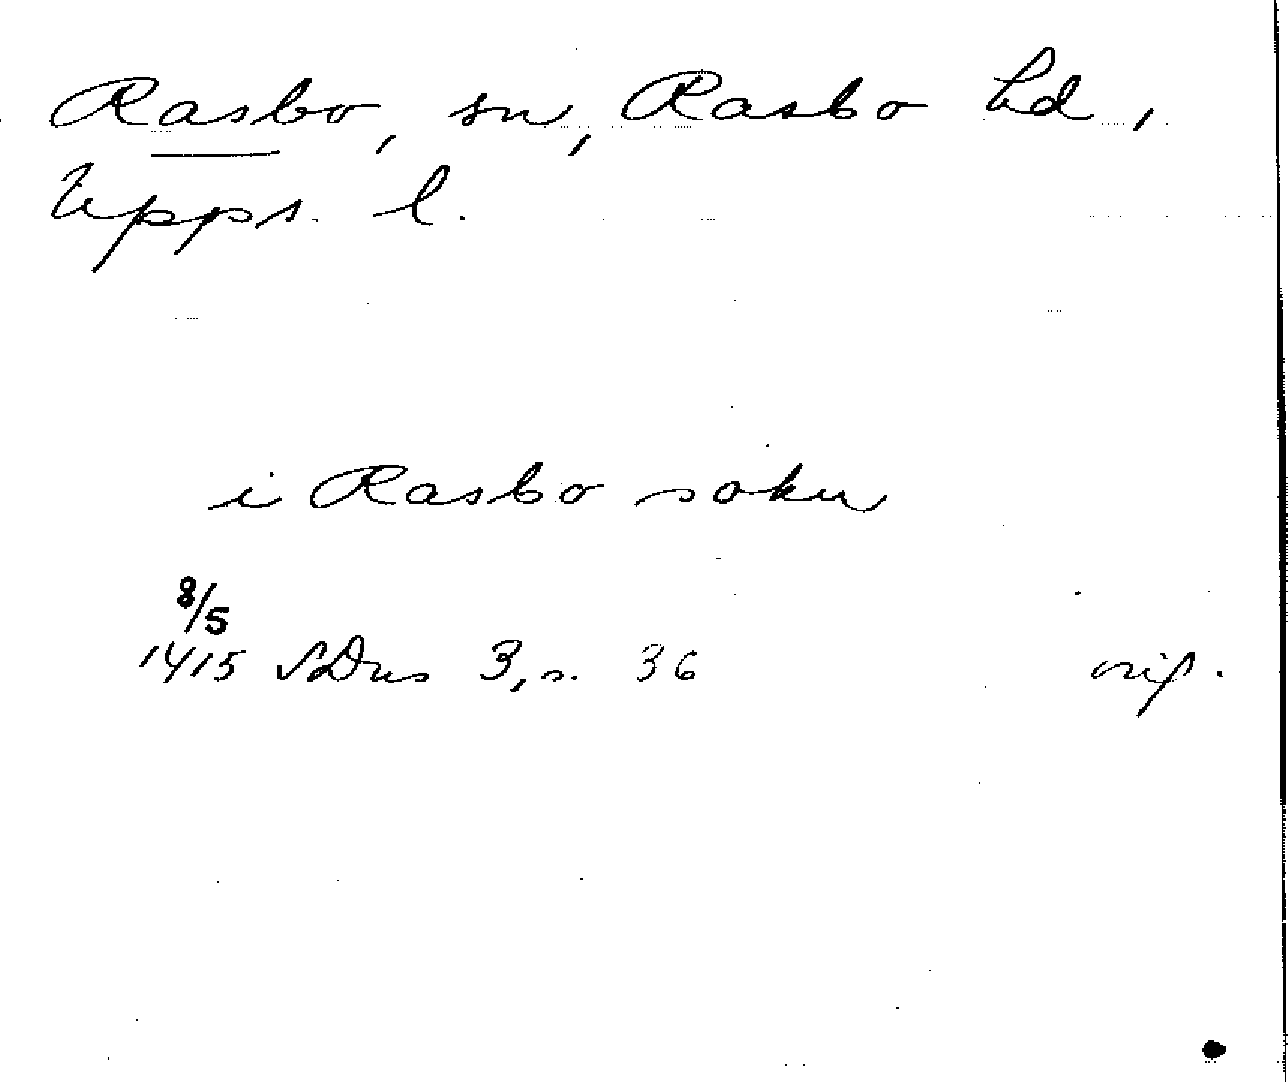 Rasbo, sn, Rasbo hd,
Upps. l.
i Rasbo sokn
8/5
1415 SDns 3, s. 36 orig.